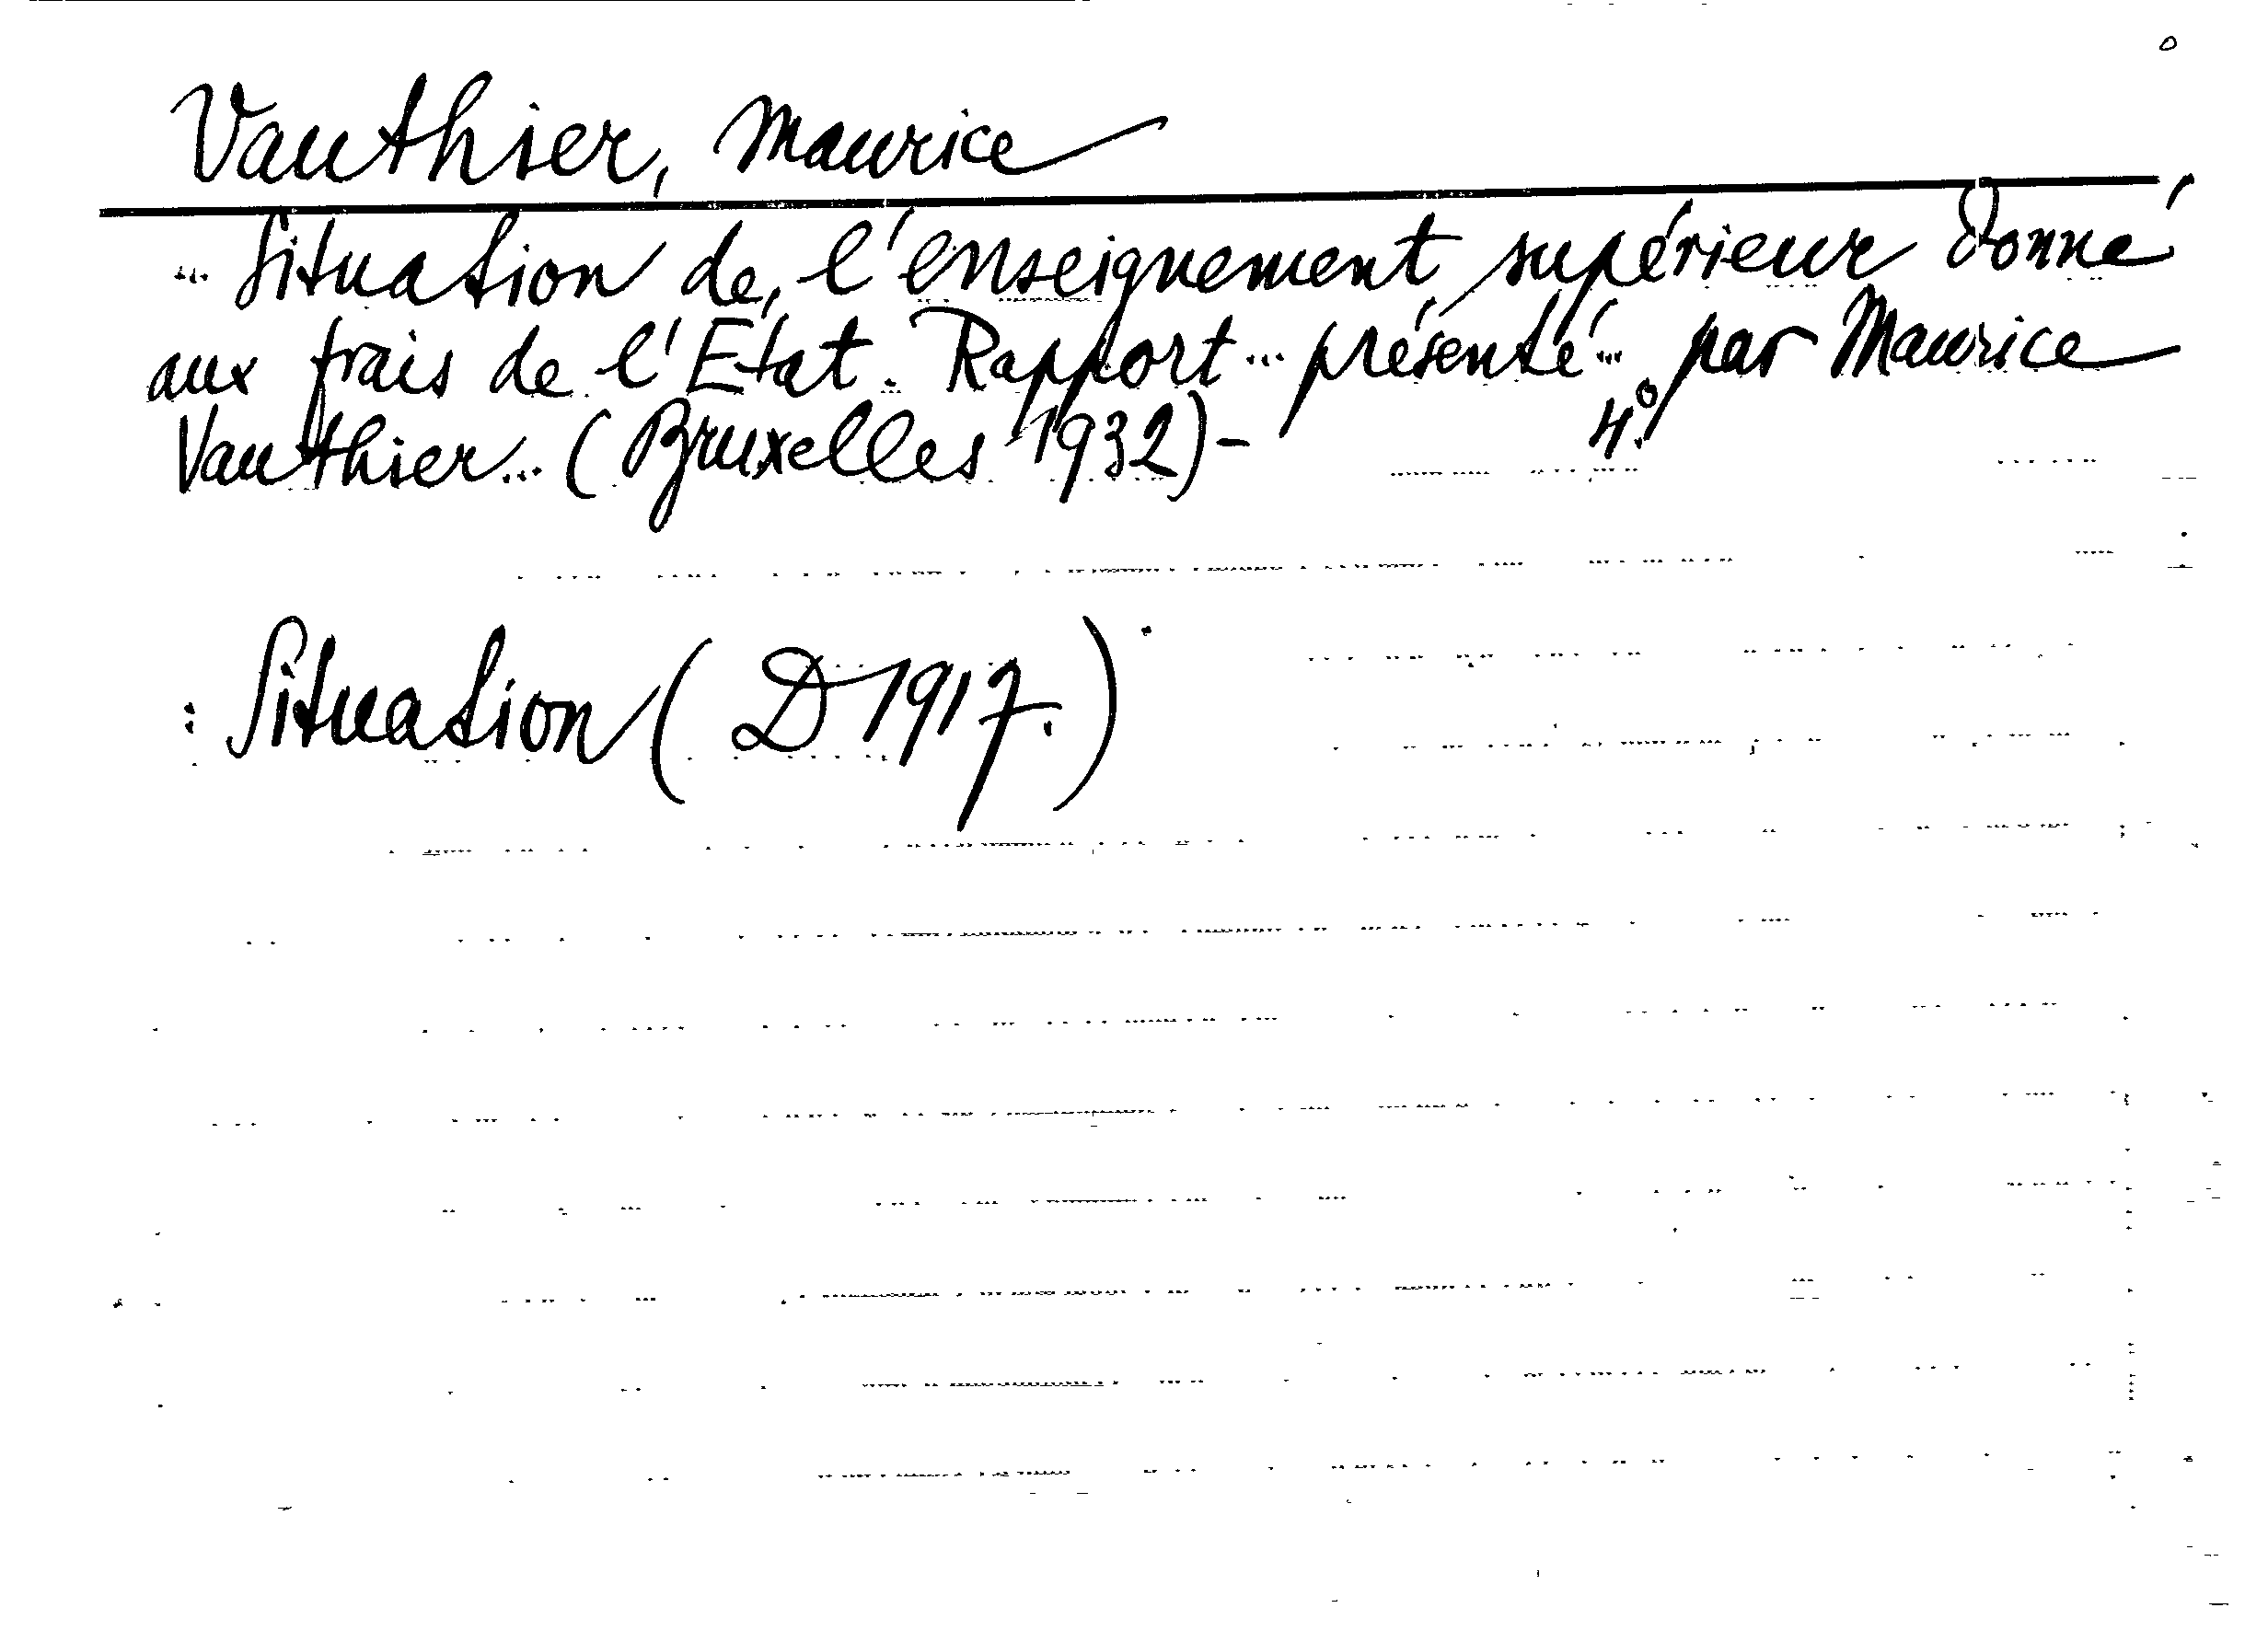 Vauthier, Maurice
... Situation de l'enseignement supérieur donné
aux frais de l'État. Rapport ... présenté ... par Maurice
Vauthier ... (Bruxelles 1932)- 4°.
: Situation (D 1917.)